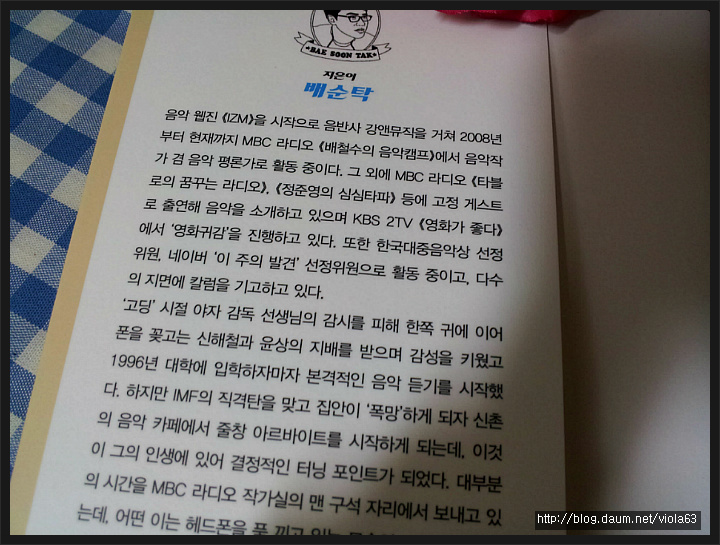 BAE SOON TAK
지은이
배순탁
음악 웹진 《IZM》을 시작으로 음반사 강앤뮤직을 거쳐 2008년
부터 현재까지 MBC 라디오 《배철수의 음악캠프》에서 음악작
가 겸 음악 평론가로 활동 중이다. 그 외에 MBC 라디오 《타블
로의 꿈꾸는 라디오》, 《정준영의 심심타파》 등에 고정 게스트
로 출연해 음악을 소개하고 있으며 KBS 2TV 《영화가 좋다》
에서 '영화귀감'을 진행하고 있다. 또한 한국대중음악상 선정
위원, 네이버 '이 주의 발견' 선정위원으로 활동 중이고, 다수
의 지면에 칼럼을 기고하고 있다.
'고딩' 시절 야자 감독 선생님의 감시를 피해 한쪽 귀에 이어
폰을 꽂고는 신해철과 윤상의 지배를 받으며 감성을 키웠고
1996년 대학에 입학하자마자 본격적인 음악 듣기를 시작했
다. 하지만 IMF의 직격탄을 맞고 집안이 '폭망'하게 되자 신촌
의 음악 카페에서 줄창 아르바이트를 시작하게 되는데, 이것
이 그의 인생에 있어 결정적인 터닝 포인트가 되었다. 대부분
의 시간을 MBC 라디오 작가실의 맨 구석 자리에서 보내고 있
는데, 어떤 이는 헤드폰을 푹 끼고 있는
http://blog.daum.net/viola63